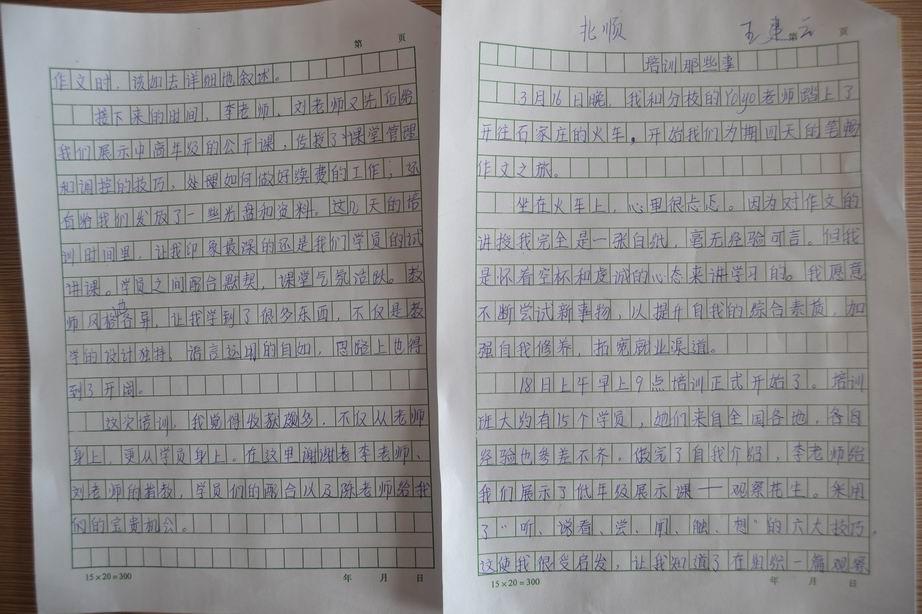 北顺 王建云
第 页
培训那些事
3月16日晚，我和分校的Yoyo老师踏上了
开往石家庄的火车。开始我们为期四天的笔畅
作文之旅。
坐在火车上，心里很忐忑。因为对作文的
讲授我完全是一张白纸，毫无经验可言。但我
是怀着空杯和虔诚的心态来讲学习的。我愿意
不断尝试新事物，以提升自我的综合素质，加
强自我修养，拓宽就业渠道。
18日上午早上9点培训正式开始了。培训
班大约有15个学员，她们来自全国各地，各自
经验也参差不齐。做完了自我介绍，李老师给
我们展示了低年级展示课——观察花生。采用
了“听、说看、尝、闻、触、想”的六大技巧，
这使我很受启发，让我知道了在组织一篇观察
15×20=300 年 月 日
第 页
作文时，该如去详细地叙述。
接下来的时间，李老师、刘老师又先后给
我们展示中高年级的公开课，传授了课堂管理
和调控的技巧，处理如何做好续费的工作；还
有给我们发放了一些光盘和资料。这几天的培
训时间里，让我印象最深的还是我们学员的试
讲课。学员之间配合默契，课堂气氛活跃。教
师风格各异，让我学到了很多东西，不仅是教
学的设计独特，语言运用的自如，思路上也得
到了开阔。
这次培训，我觉得收获颇多，不仅从老师
身上，更从学员身上。在这里谢谢老李老师、
刘老师的指教，学员们的配合以及陈老师给我
们的宝贵机会。
15×20=300 年 月 日